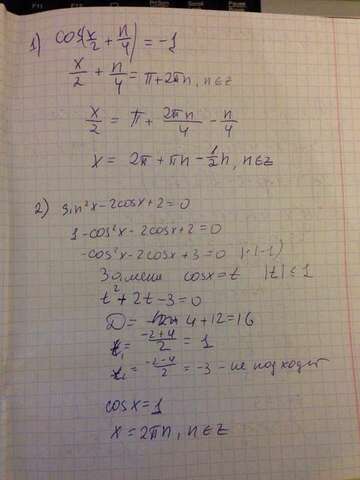 1) cos(x/2 + п/4) = -1
x/2 + п/4 = π+2πn, n∈z
x/2 = π + 2πn/4 - п/4
x = 2π + πn - 1/2п, n∈z
2) sin²x - 2cosx + 2 = 0
1 - cos²x - 2cosx + 2 = 0
-cos²x - 2cosx + 3 = 0 |·(-1)
Замена cosx = t |t| ≤ 1
t² + 2t - 3 = 0
D = 4 + 12 = 16
t₁ = -2+4/2 = 1
t₁ = -2-4/2 = -3 - не подходит
cosx = 1
x = 2πn, n∈z